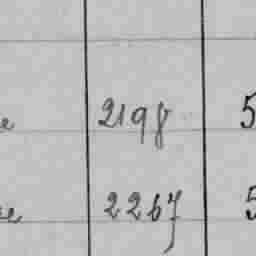 2198 5
2267 5